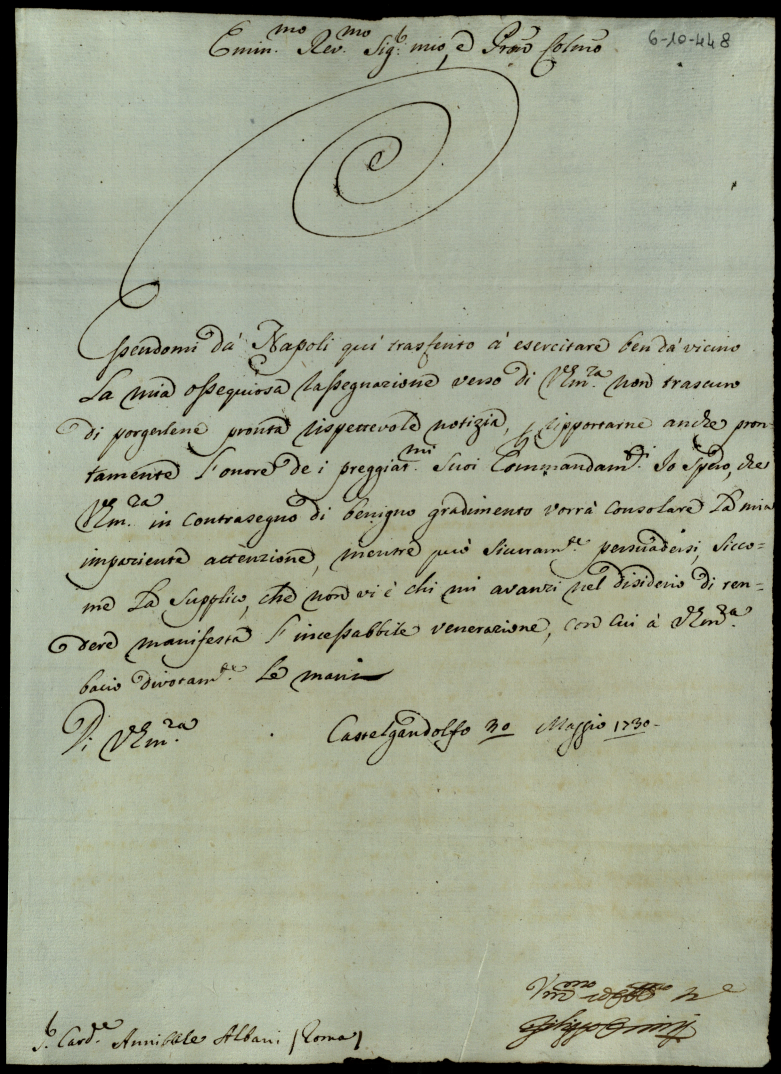 Emin.mo Rev.mo Sig.r mio, e Pron Colmo
6-10-448
Essendomi dà Napoli quì trasferito à esercitare ben dà vicino
la mia ossequiosa rassegnazione verso di VEm.za non trascuro
di porgerlene pronta rispettevole notizia, p riportarne anche pron-
tamente l'onore de i preggiat.mi suoi Commandam.ti. Io spero, che
VEm.za in contrasegno di benigno gradimento vorrà consolare la mia
impaziente attenzione, mentre può sicuram.te persuadersi, sicco-
me la supplico, che non vi è chi mi avanzi nel disiderio di ren-
dere manifesta l'incessabbile venerazione, con cui à VEm.za
bacio divotam.te le mani
Di VEm.za Castelgandolfo 30 Maggio 1730
Filippo
S.r Card.le Annibale Albani (Roma)